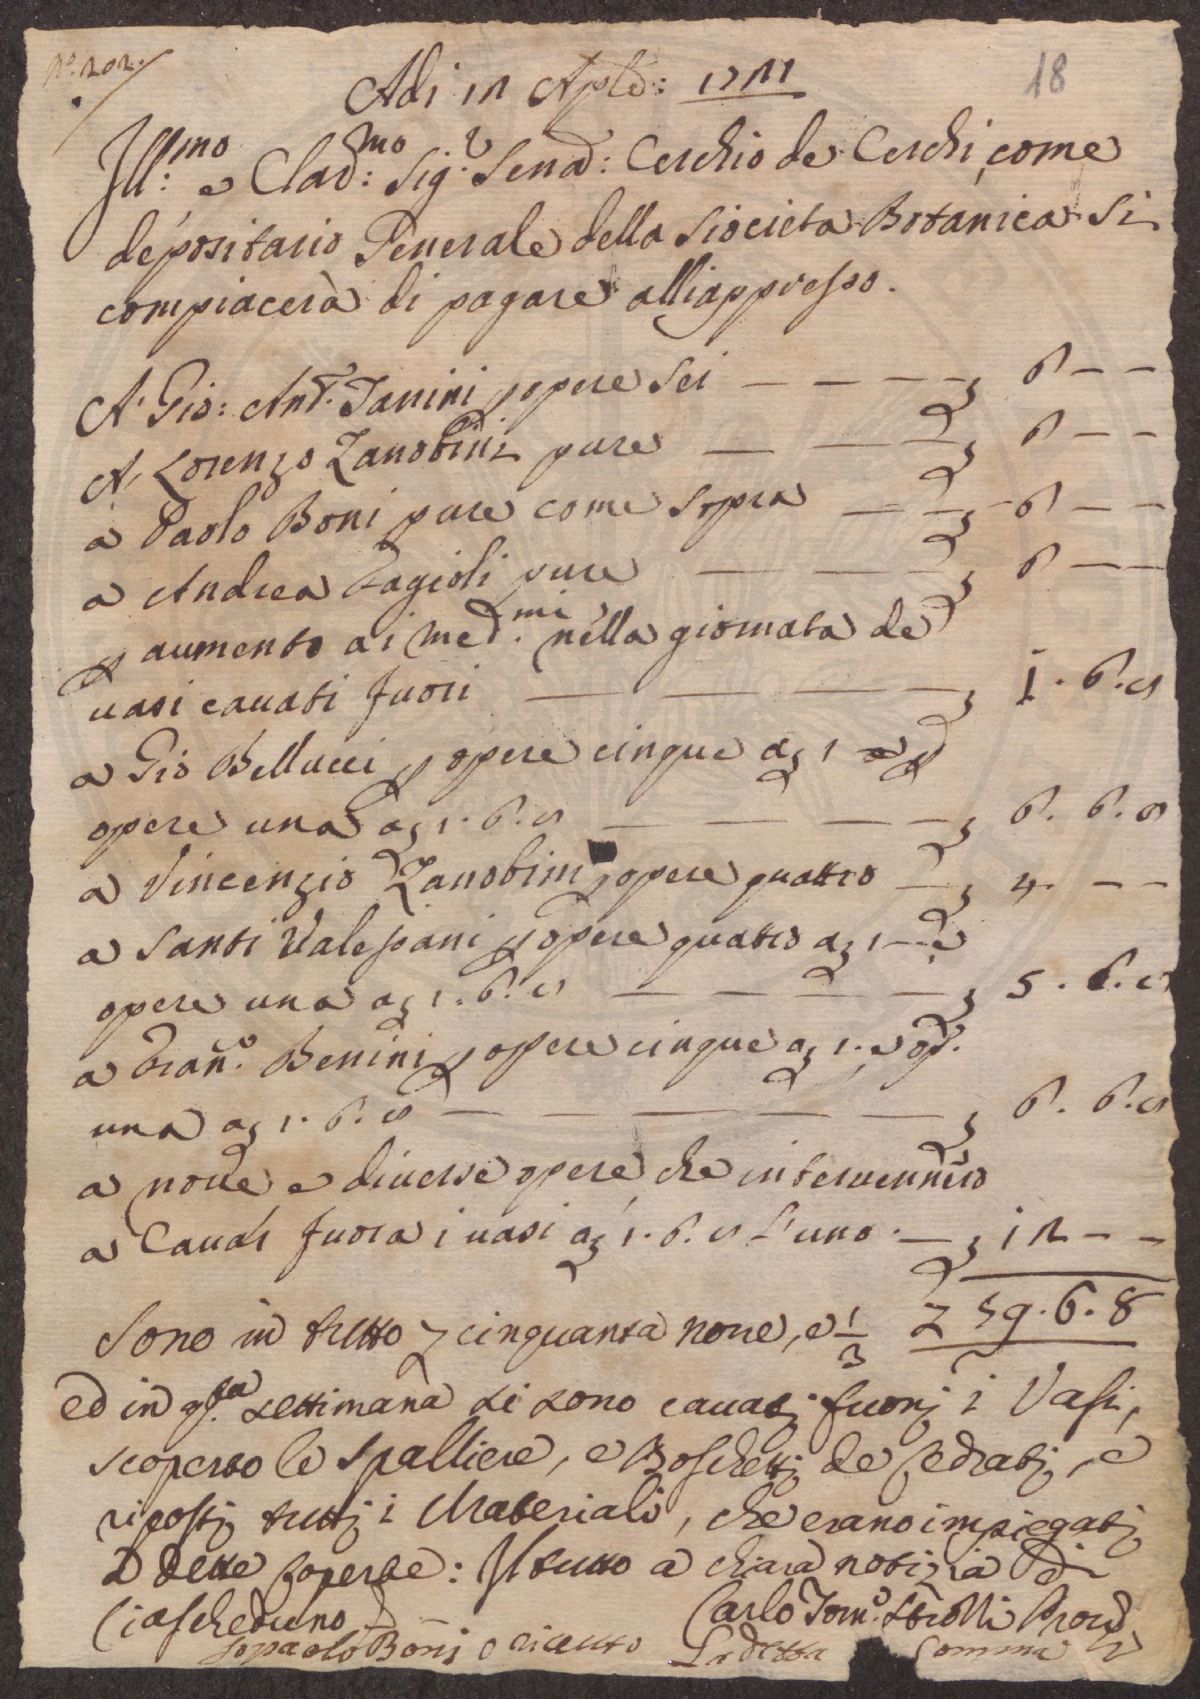 N.° 202.
18
Adi 12 Aple:
Ill:mo e Clar:mo Sig.r Senat: Cerchio de Cerchi, come
depositario Generale della Siocieta Botanica si
compiacerà di pagare alli appresso.
A Gio: Ant.° Janini p opere sei — — — — 6 — —
A Lorenzo Zanobini pure — — — 6 — —
a Paolo Boni pure come sopra — — — 6 — —
a Andrea Fagioli pure — — — 6 — —
p aumento ai med.mi nella giornata de
vasi cavati fuori — — — — 1 . 6 . 8
a Gio Bellucci p opere cinque a 1 e p
opere una a 1 . 6 . 8 — — — — 6 . 6 . 8
a Vincenzio Zanobini p opere quattro — 4 . — —
a Santi Valesani p opere quatro a 1 — e
opere una a 1 . 6 . 8 — — — — 5 . 6 . 8
a Fran.° Benini p opere cinque a 1 . e op.
una a 1 . 6 . 8 — — — — — 6 . 6 . 8
a nove e diverse opere che intervennero
a Cavar fuora i vasi a 1 . 6 . 8 l'uno . — 12 — —
59 . 6 . 8
Sono in tutto cinquanta nove, e 1/3
ed in q.sta settimana si sono cavati fuori i Vasi,
scoperto le spalliere, e Boschetti de Cedrati, e
riposti tutti i Materiali, che erano impiegati
a dette coperte: Il tutto a chiara notizia di
Ciascheduno
Carlo Tom.° Strozzi Prov.
Io paolo Boni o riceuto La detta Somma